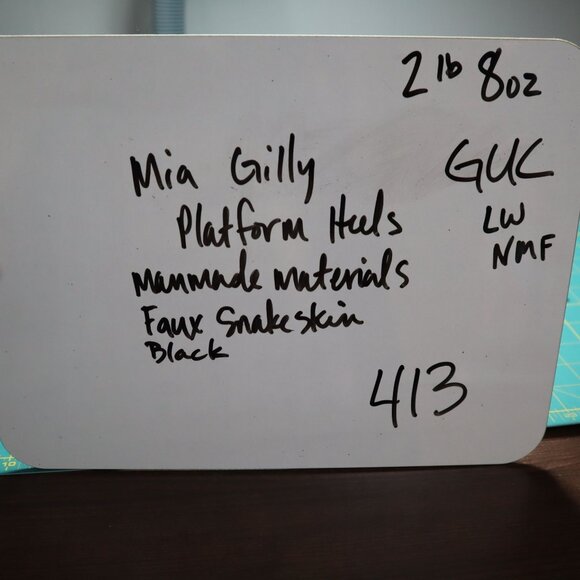 2 lb 8oz
Mia Gilly
GUC
Platform Heels
LW
NMF
Manmade materials
Faux Snakeskin
Black
413